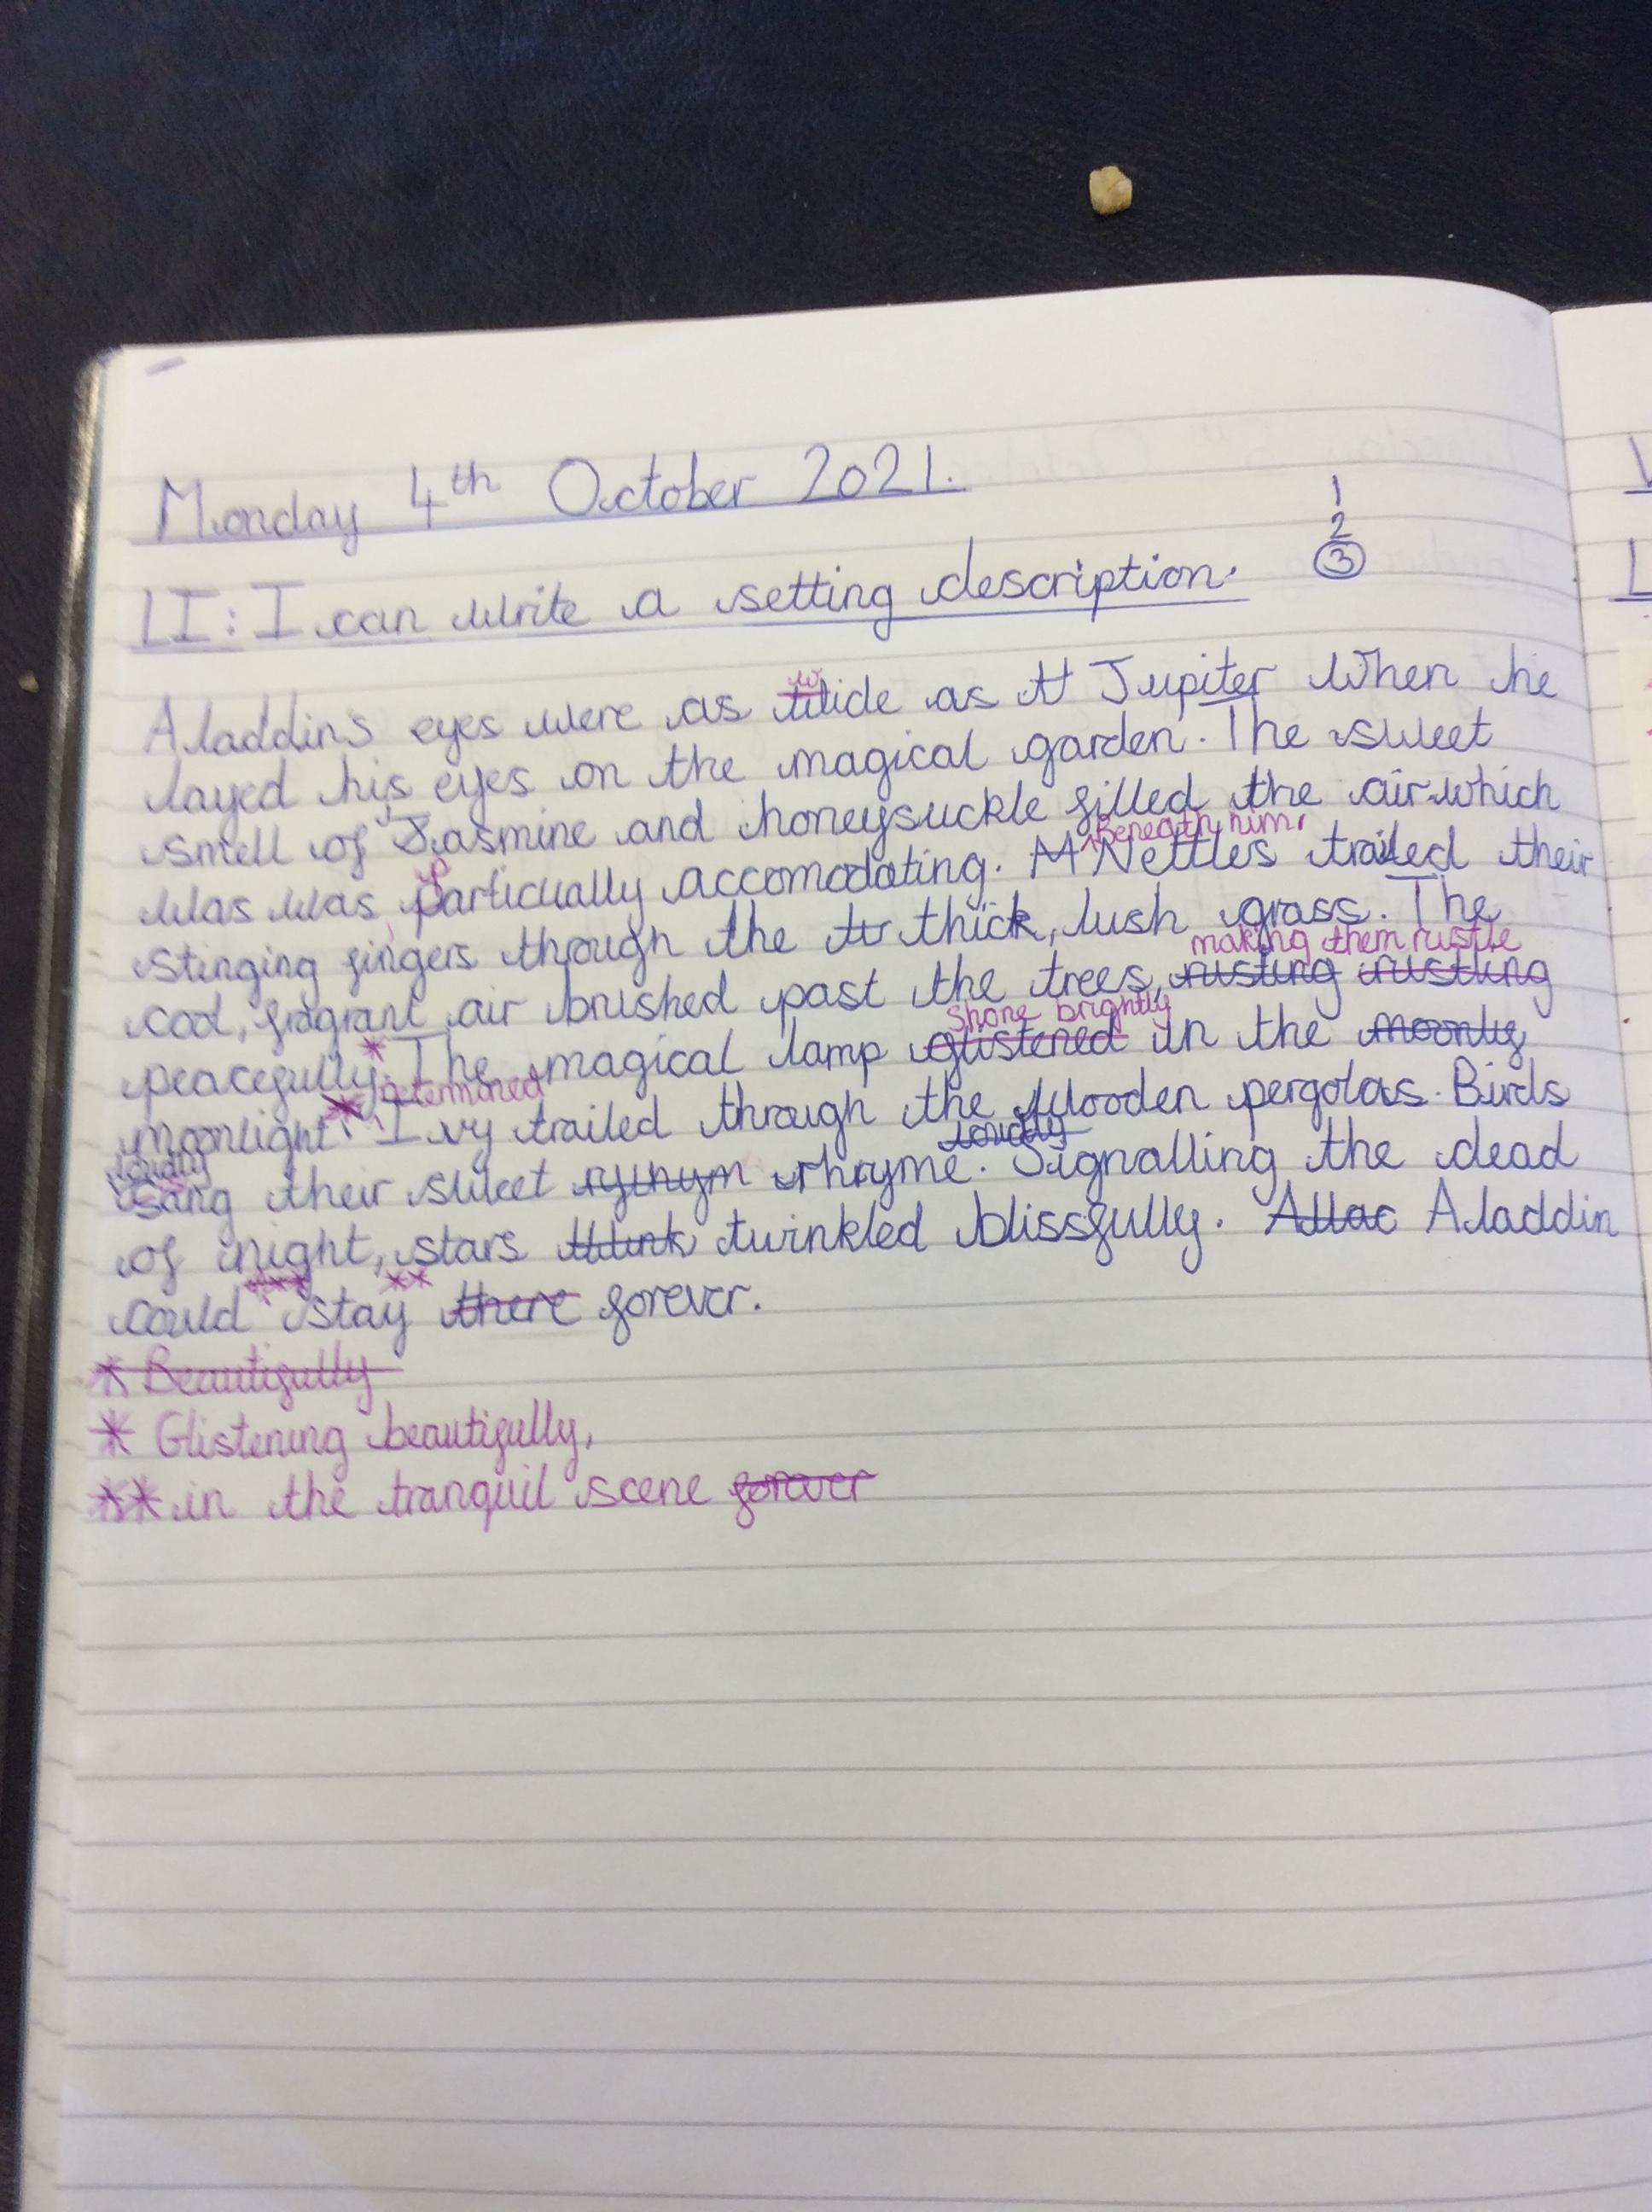 Monday 4th October 2021.
1
2
3
LI: I can write a setting description.
w
Aladdins eyes were as wide as Jupiter when he
layed his eyes on the magical garden. The sweet
smell of Jasmine and honeysuckle filled the air which
Beneath him,
was was particually accomodating. Nettles trailed their
stinging fingers through the thick, lush grass. The
making them rustle
cool, fragrant air brushed past the trees, rusting rustling
shone brightly
peacefully. * The magical lamp glistened in the moonly
determined
moonlight. Ivy trailed through the wooden pergolas. Birds
loudly loudly
sang their sweet rynym rhryme. Signalling the dead
of night, stars twinkled blissfully. Allac Aladdin
**
could stay there forever.
* Beautifully
* Glistening beautifully,
** in the tranquil scene forever